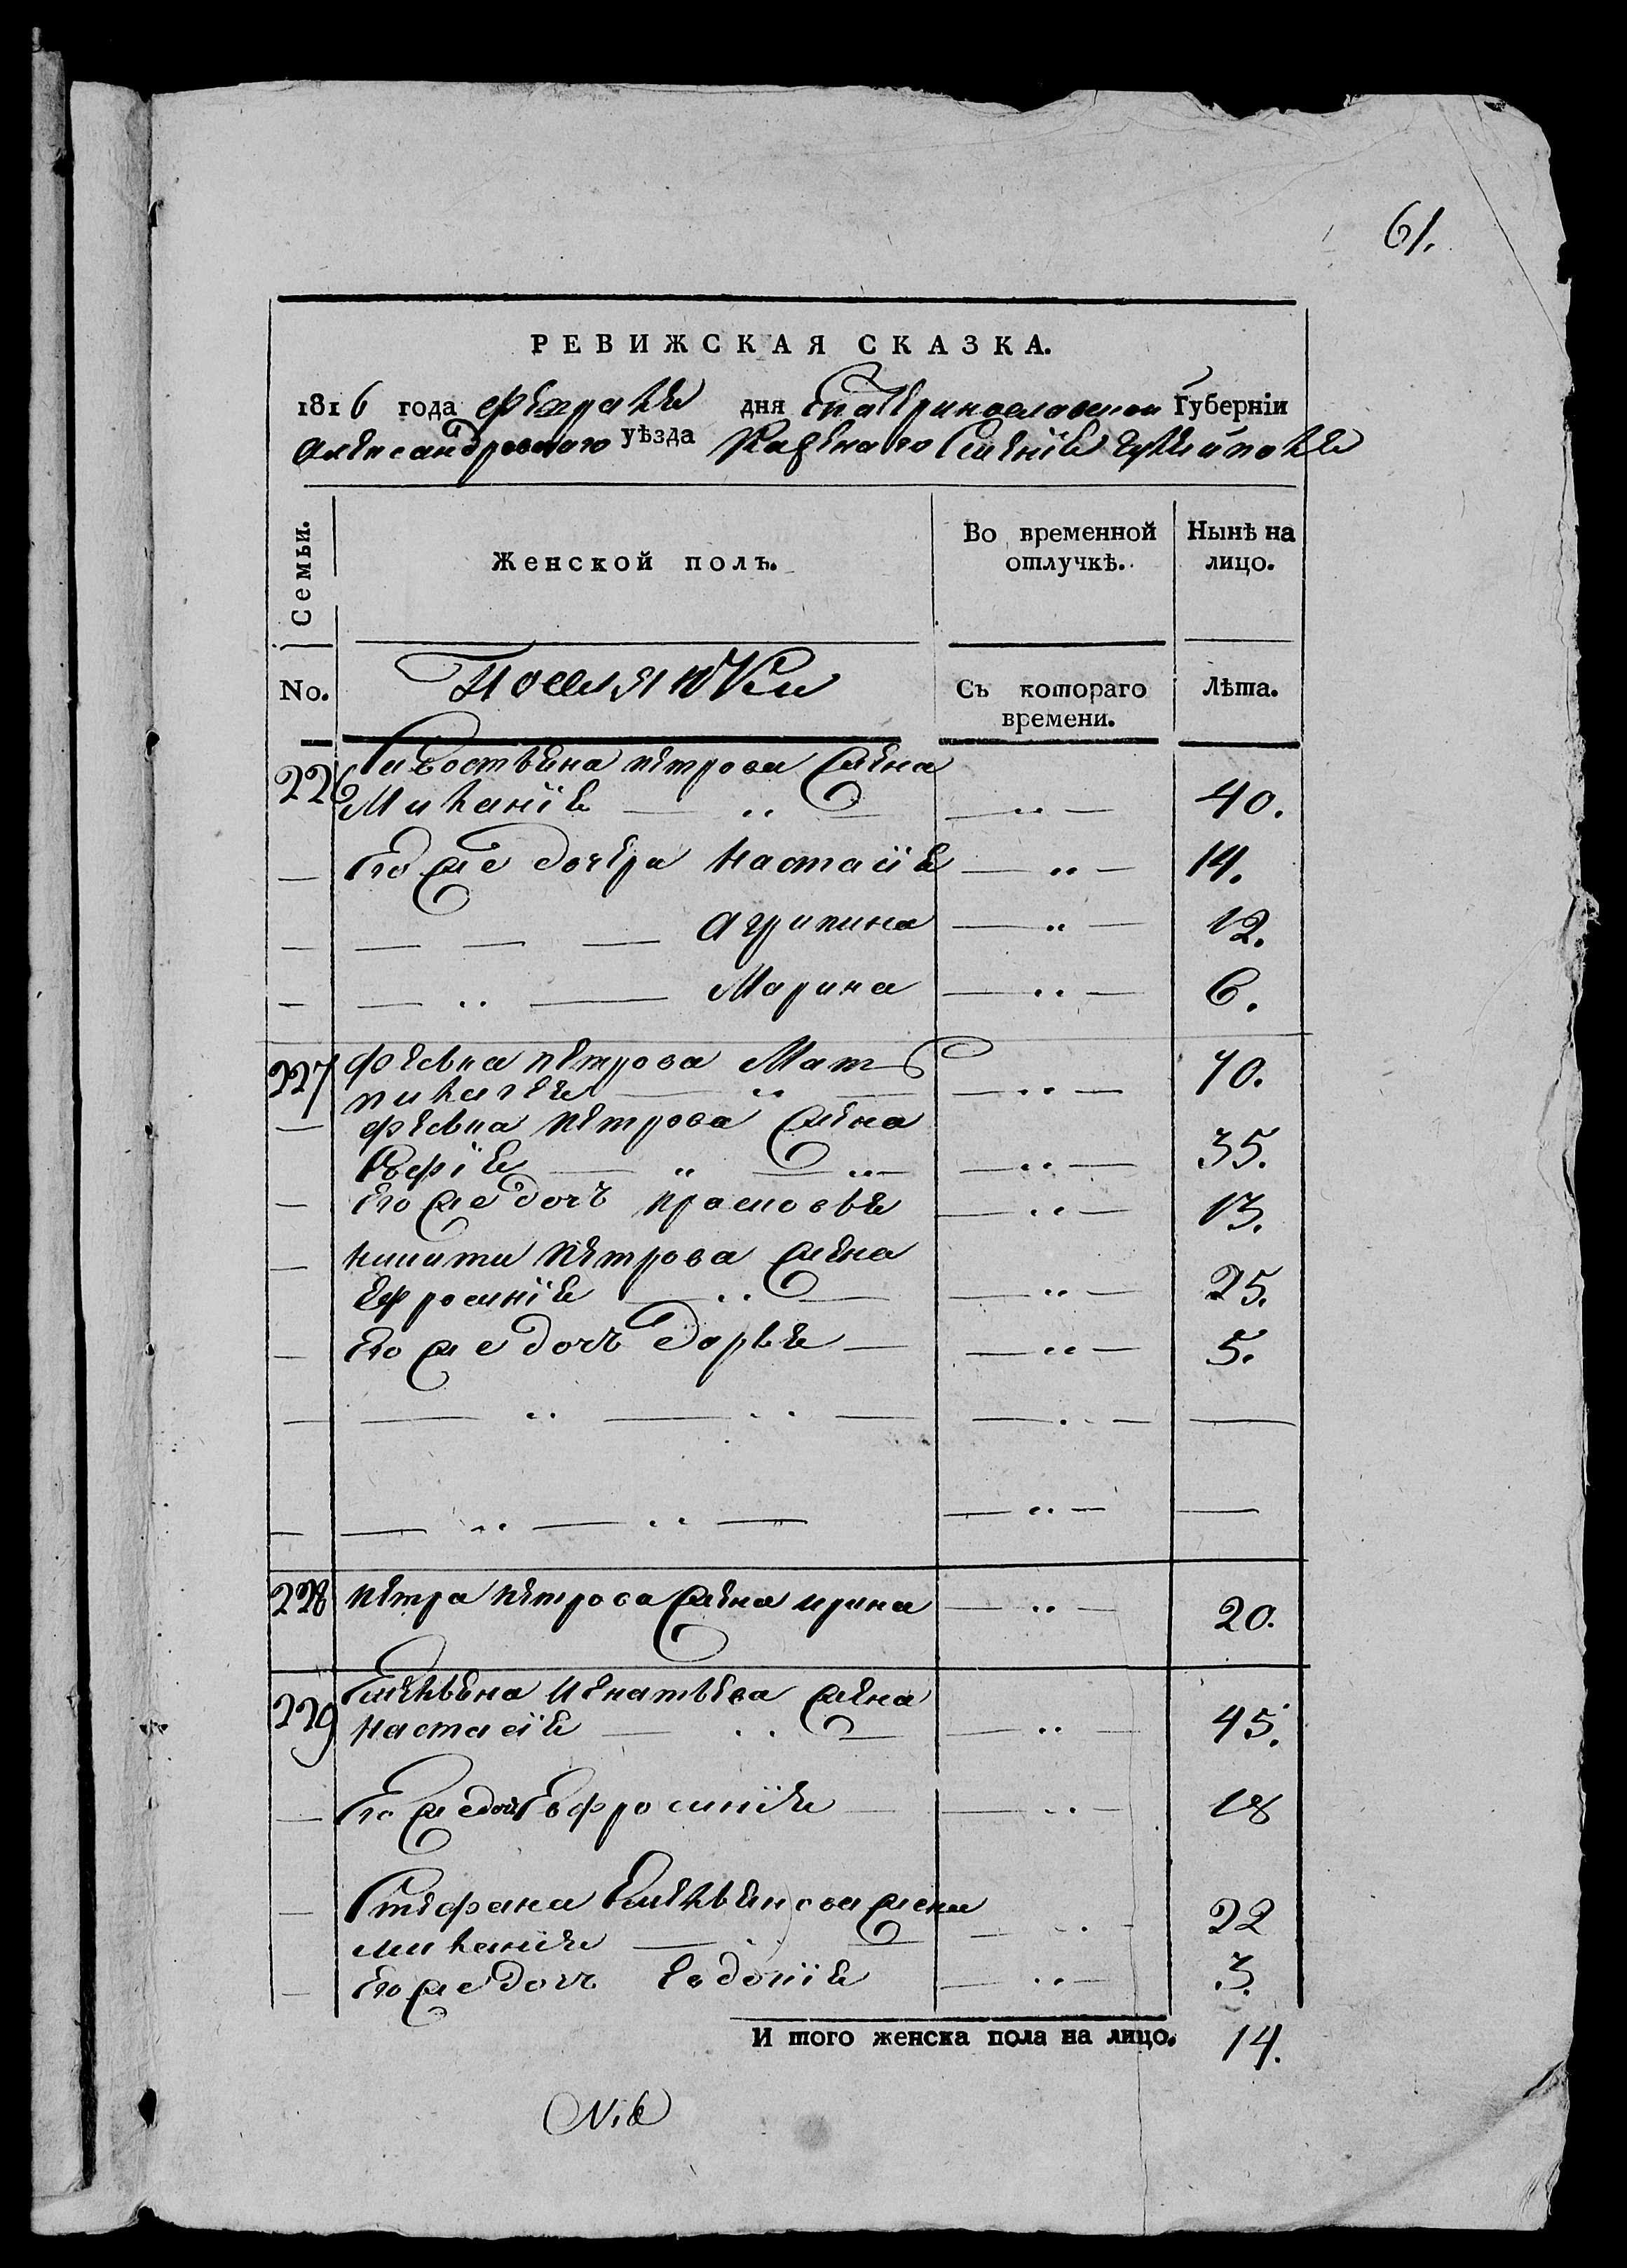 61.
РЕВИЖСКАЯ СКАЗКА.
1816 года февраля дня Екатеринославской Губерніи
Александровского уѣзда Казенного Селенія Гуляйполя
Семьи.
Женской полъ.
Во временной отлучкѣ.
Нынѣ на лицо.
No.
Поселянки
Съ котораго времени.
Лѣта.
226 Савостьяна петрова жена
Миланія — 40.
— Его же дочери Настасія — 14.
— Агрипина — 12.
— Марина — 6.
227 Федька петрова Мать
70.
— петрова жена
Софія — 35.
— Его же дочь прасковья — 13.
— никиты петрова жена
Ефросинія — 25.
— Его же дочь дарья — 5.
228 петра петрова жена ирина — 20.
229 Емельяна Игнатьева жена
Настасія — 45.
— Его же дочь Ефросинія — 18
— Стефана Емельянова жена
миланія — 22
— Его же дочь Евдокія — 3.
И того женска пола на лицо. 14.